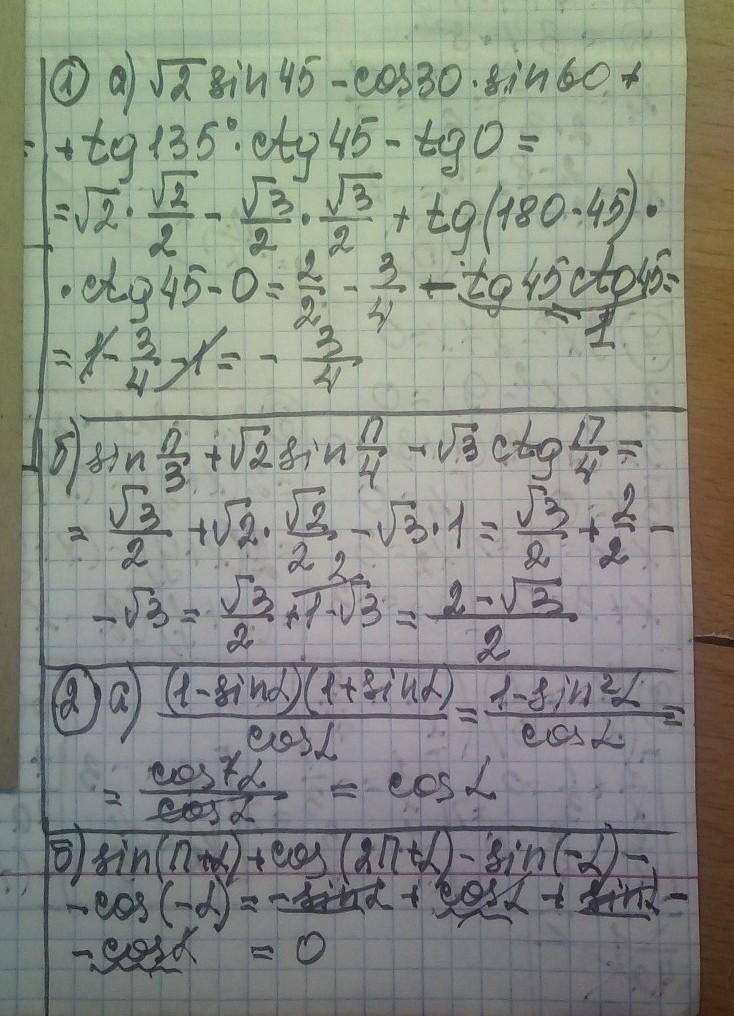 ① а) √2 sin45 - cos30 · sin60 +
+ tg135° · ctg45 - tg0 =
= √2 · √2/2 - √3/2 · √3/2 + tg(180-45) ·
· ctg45 - 0 = 2/2 - 3/4 - tg45 ctg45 =
= 1
= 1 - 3/4 - 1 = - 3/4
б) sin π/3 + √2 sin π/4 - √3 ctg π/4 =
= √3/2 + √2 · √2/2 - √3 · 1 = √3/2 + 2/2 -
- √3 = √3/2 + 1 - √3 = (2 - √3)/2
② а) (1-sinα)(1+sinα)/cosα = (1-sin²α)/cosα =
= cos²α/cosα = cosα
б) sin(π+α) + cos(2π+α) - sin(-α) -
- cos(-α) = - sinα + cosα + sinα -
- cosα = 0